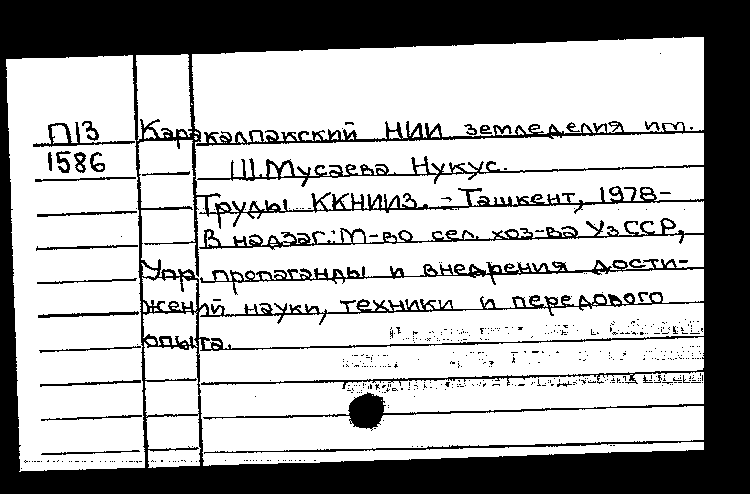 П13 Каракалпакский НИИ земледелия им.
1586 Ш.Мусаева. Нукус.
Труды ККНИИЗ. - Ташкент, 1978-
В надзаг.: М-во сел. хоз-ва УзССР,
Упр. пропаганды и внедрения дости-
жений науки, техники и передового
опыта.